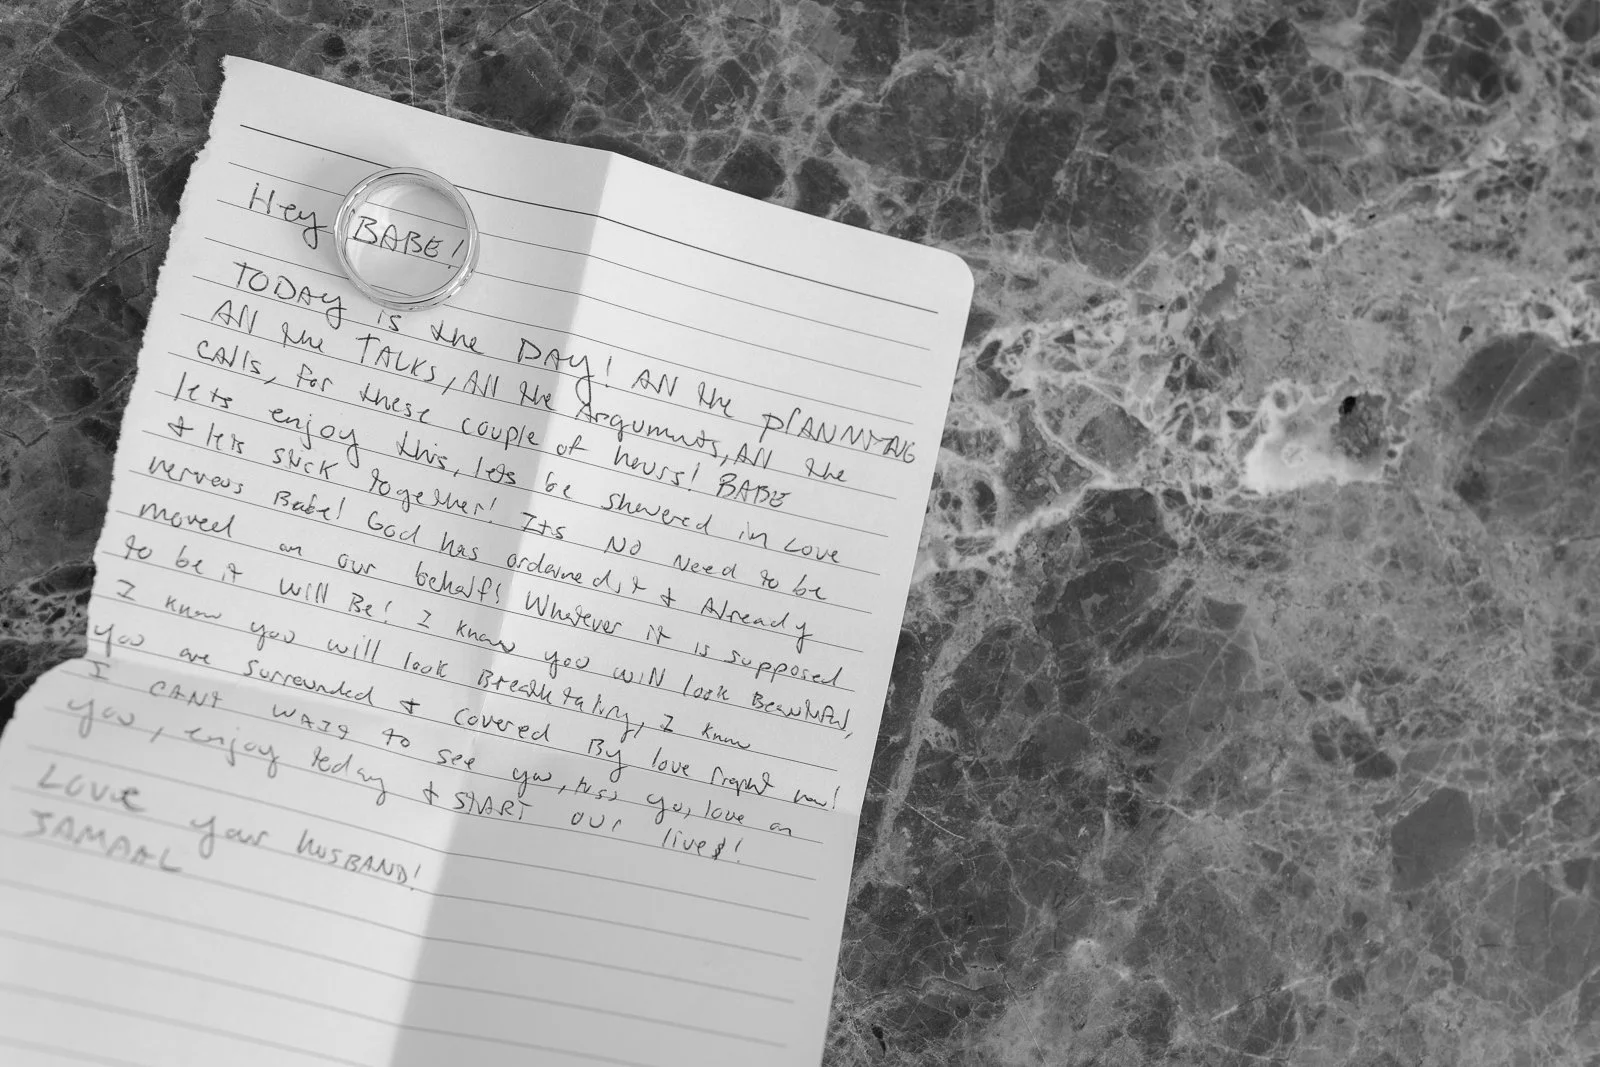 Hey BABE!
TODAY is the DAY! All the PlANNING
All the TALKS, All the Arguments, All the
CAlls, for these couple of hours! BABE
lets enjoy this, lets be showered in Love
& lets stick together! Its NO Need to be
nervous Babe! God has ordained it & Already
moved on our behalf! Whatever it is supposed
to be it will Be! I know you will look Beautiful,
I know you will look Breathtaking, I know
you are surrounded & covered By love right now!
I CANt WAit to see you, kiss you, love on
you, enjoy today & START our lives!
Love your HUSBAND!
JAMAAL